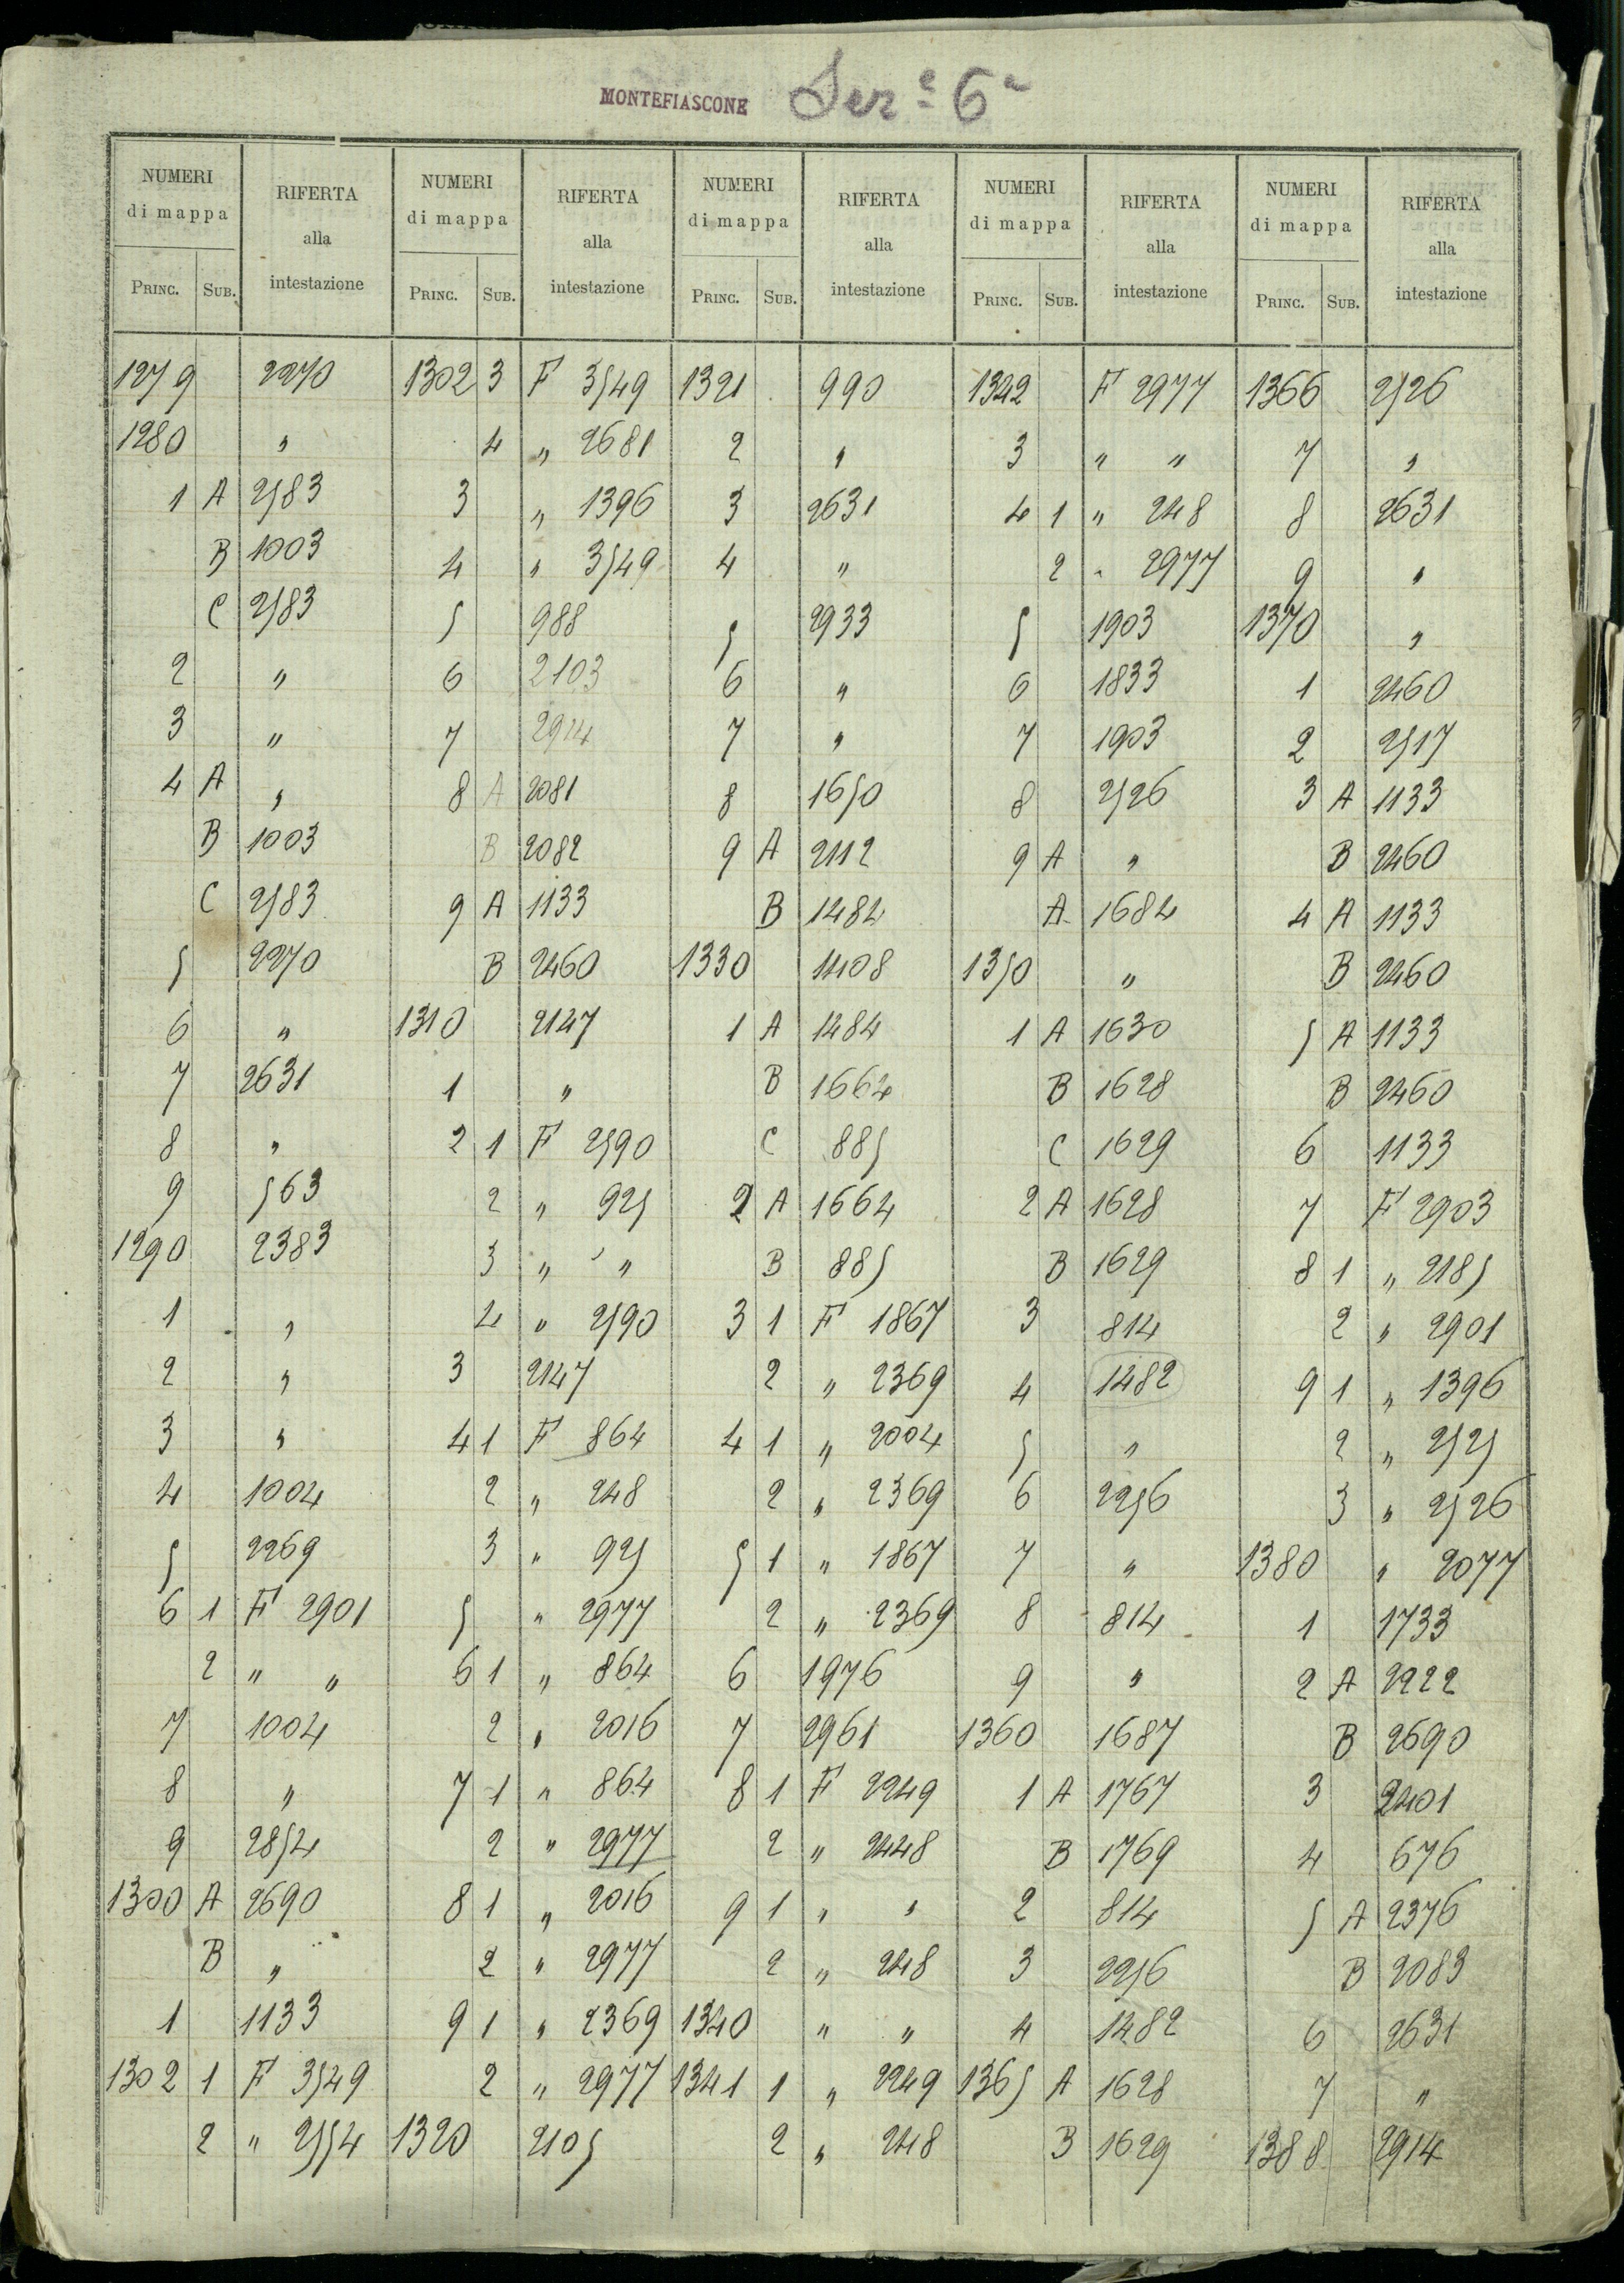 MONTEFIASCONE Sez.e 6a
NUMERI di mappa RIFERTA alla intestazione NUMERI di mappa RIFERTA alla intestazione NUMERI di mappa RIFERTA alla intestazione NUMERI di mappa RIFERTA alla intestazione NUMERI di mappa RIFERTA alla intestazione
PRINC. SUB. PRINC. SUB. PRINC. SUB. PRINC. SUB. PRINC. SUB.
1279 2270 1302 3 F 3549 1321 990 1342 F 2977 1366 2526
1280 " 4 " 2681 2 " 3 " " 7 "
1 A 2583 3 " 1396 3 2631 4 1 " 248 8 2631
B 1003 4 " 3549 4 " 2 " 2977 9 "
C 2583 5 988 5 2933 5 1903 1370 "
2 " 6 2103 6 " 6 1833 1 2460
3 " 7 2914 7 " 7 1903 2 2517
4 A " 8 A 2081 8 1650 8 2526 3 A 1133
B 1003 B 2082 9 A 2112 9 A " B 2460
C 2583 9 A 1133 B 1484 A 1684 4 A 1133
5 2270 B 2460 1330 1408 1350 " B 2460
6 " 1310 2147 1 A 1484 1 A 1630 5 A 1133
7 2631 1 " B 1664 B 1628 B 2460
8 " 2 1 F 2590 C 885 C 1629 6 1133
9 563 2 " 925 2 A 1664 2 A 1628 7 F 2903
1290 2383 3 " " B 885 B 1629 8 1 " 2185
1 " 4 " 2590 3 1 F 1867 3 814 2 " 2901
2 " 3 2147 2 " 2369 4 1482 9 1 " 1396
3 " 4 1 F 864 4 1 " 2004 5 " 2 " 2525
4 1004 2 " 248 2 " 2369 6 2256 3 " 2526
5 2269 3 " 925 5 1 " 1867 7 " 1380 " 2077
6 1 F 2901 5 " 2977 2 " 2369 8 814 1 1733
2 " " 6 1 " 864 6 1976 9 " 2 A 2222
7 1004 2 " 2016 7 2961 1360 1687 B 2690
8 " 7 1 " 864 8 1 F 2249 1 A 1767 3 2401
9 2854 2 " 2977 2 " 2448 B 1769 4 676
1300 A 2690 8 1 " 2016 9 1 " " 2 814 5 A 2376
B " 2 " 2977 2 " 248 3 2256 B 2083
1 1133 9 1 " 2369 1340 " " 4 1482 6 2631
1302 1 F 3549 2 " 2977 1341 1 " 2249 1365 A 1628 7 "
2 " 2554 1320 2105 2 " 248 B 1629 1388 2914